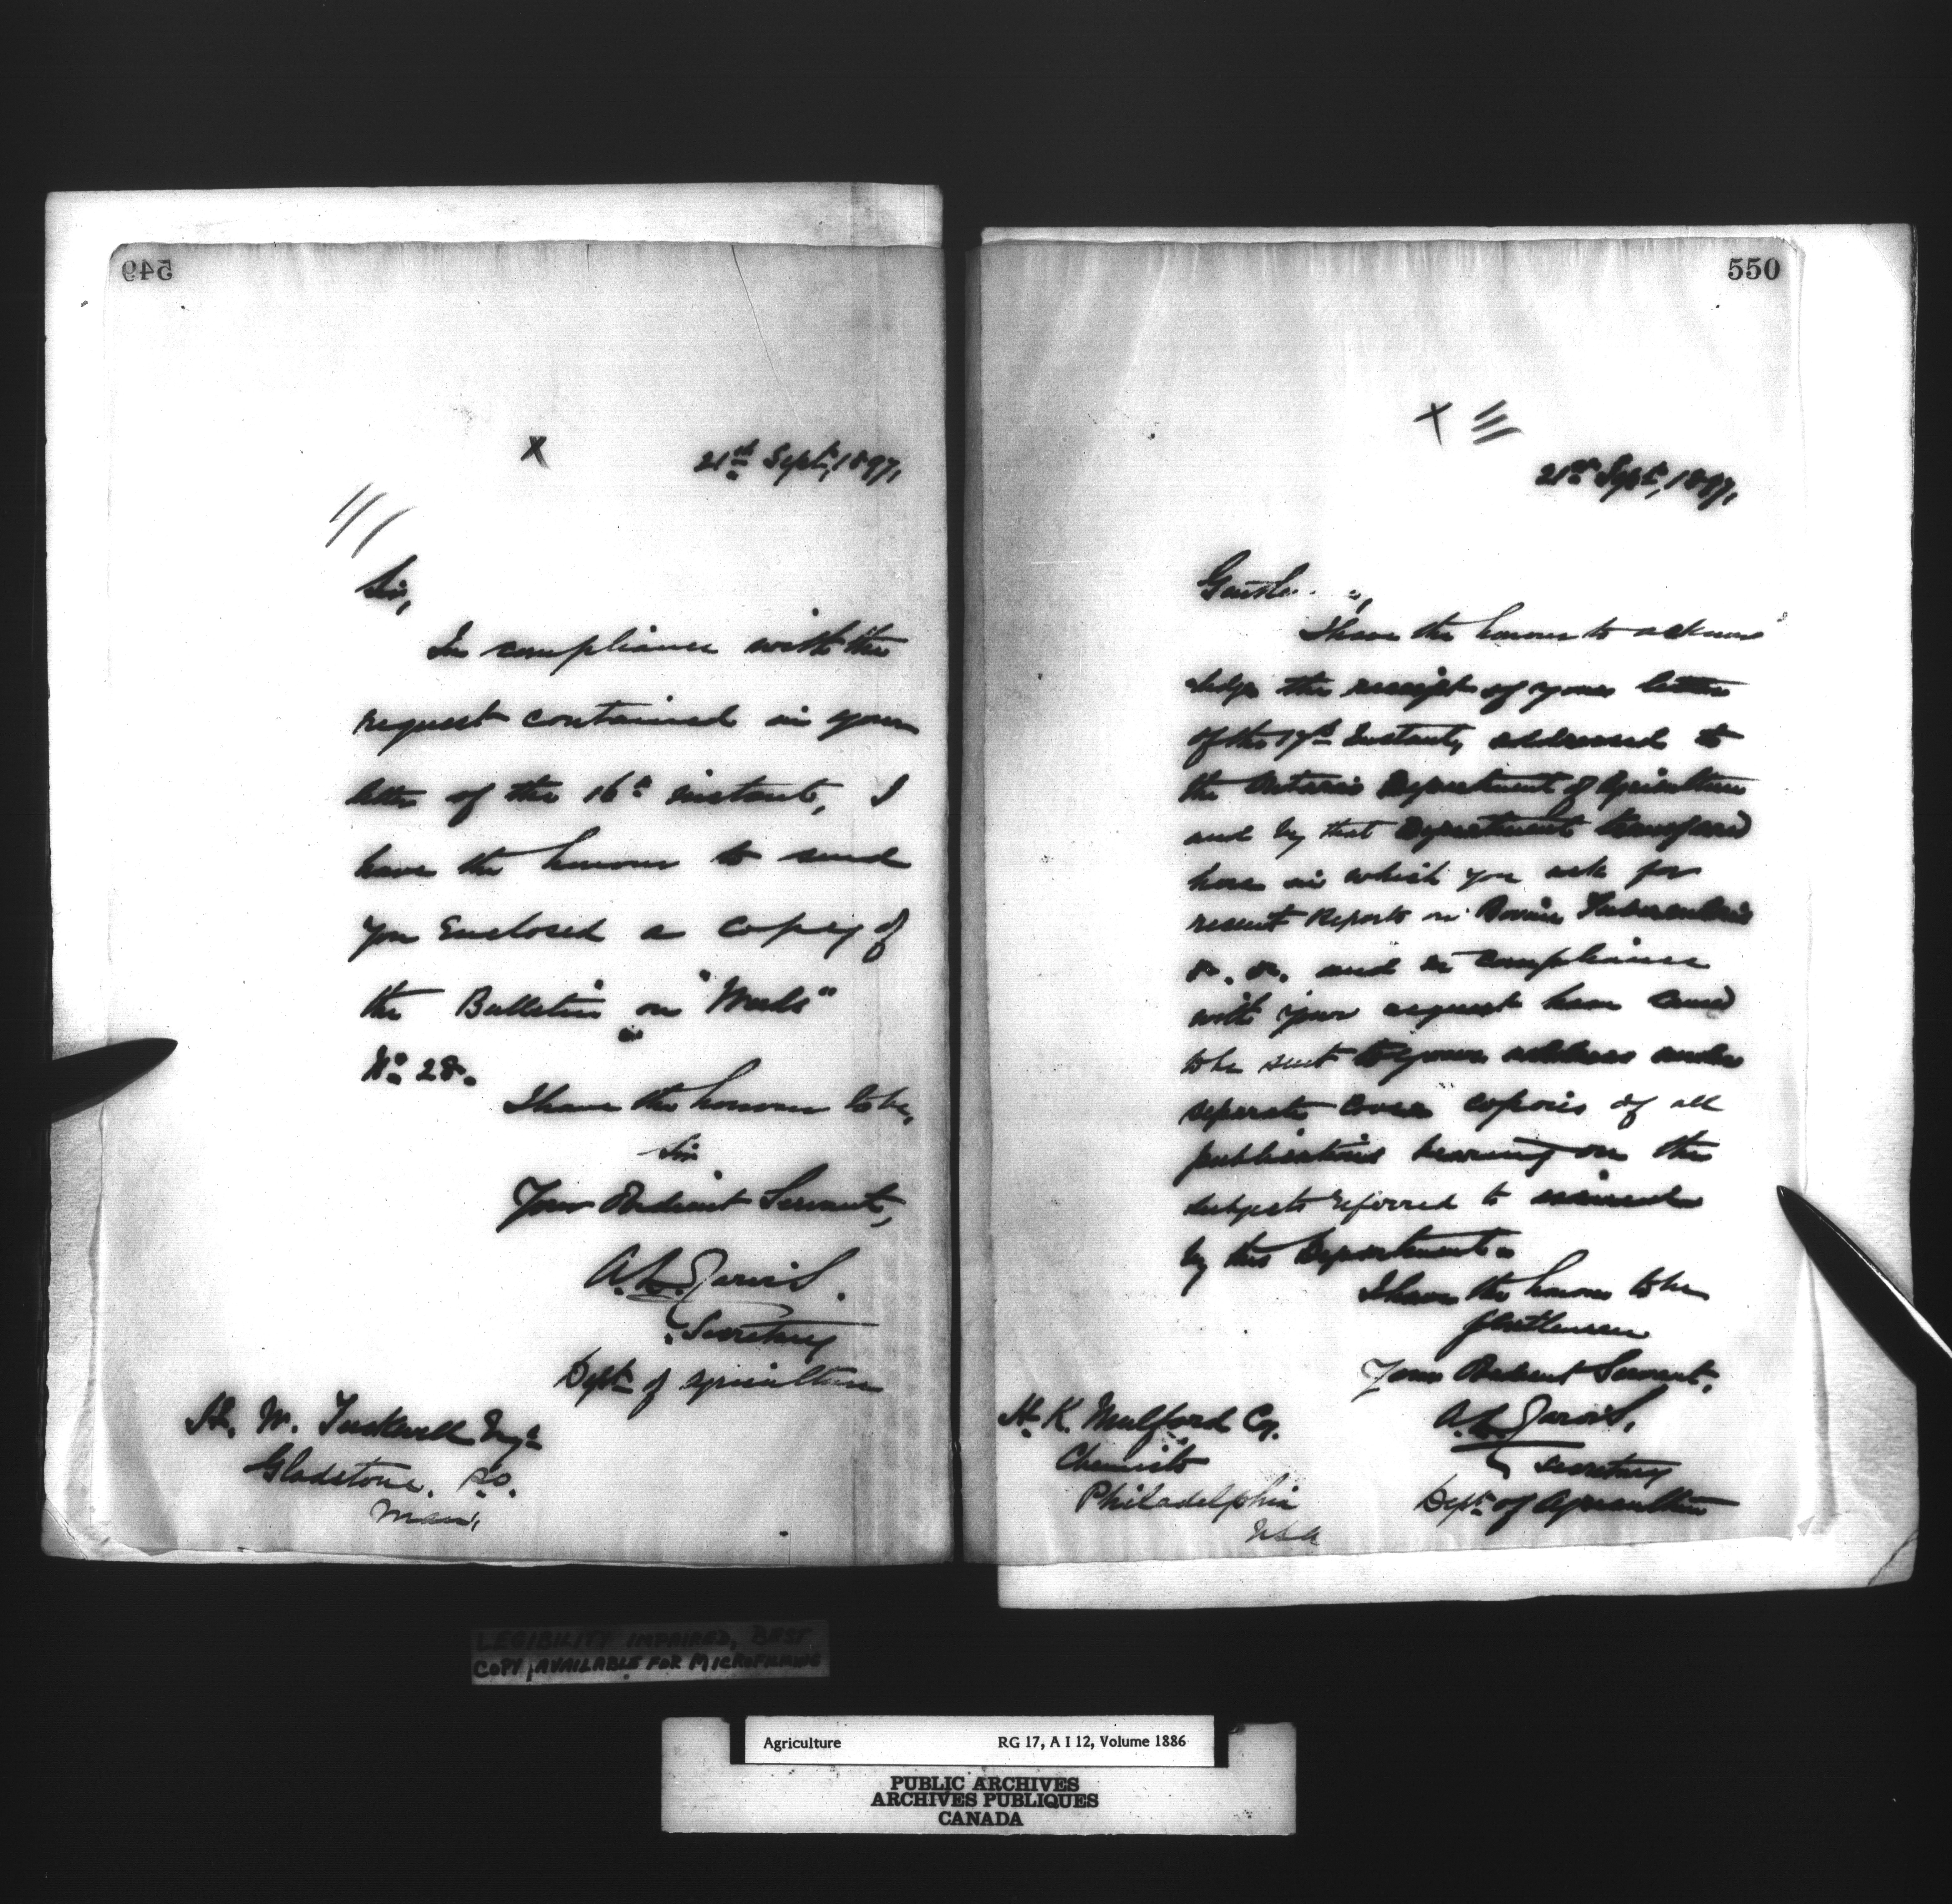 549
X
21st Sept, 1897,
Sir,
In compliance with the
request contained in your
letter of the 16th instant, I
have the honour to send
you Enclosed a copy of
the Bulletin on "Weeds"
No. 28.
I have the honour to be,
Sir
Your Obedient Servant,
A. L. Jarvis.
Secretary
Dept. of Agriculture
H. W. Tuckwell Esqr
Gladstone. P.O.
Man,
550
X
21st Sept, 1897,
I have the honour to acknow
ledge the receipt of your letter
of the 17th Instant, addressed to
the Ontario Department of Agriculture
and by that Department transferred
here in which you ask for
recent Reports on Bovine Tuberculosis
&c. &c. and in compliance
with your request have caused
to be sent to your address under
seperate cover copies of all
publications bearing on the
subjects referred to issued
by this Department.
I have the honour to be
Gentlemen
Your Obedient Servant,
A. L. Jarvis,
Secretary
Dept. of Agriculture
H. K. Mulford Co.
Chemists
Philadelphia
USA
LEGIBILITY IMPAIRED, BEST
COPY AVAILABLE FOR MICROFILMING
Agriculture RG 17, A I 12, Volume 1886
PUBLIC ARCHIVES
ARCHIVES PUBLIQUES
CANADA